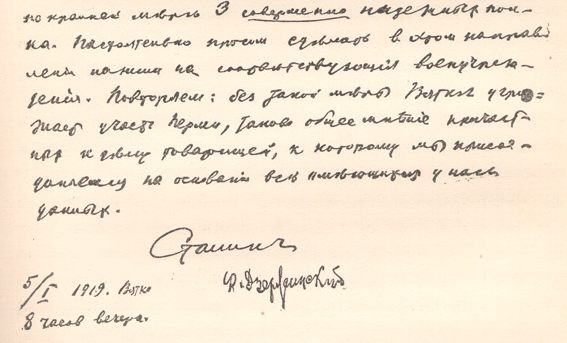 по крайней мѣрѣ 3 совершенно надежных пол-
ка. Настоятельно просим сдѣлать в этом направ
лении нажим на соответствующія военучреж-
денія. Повторяем: без такой мѣры Вяткѣ угро=
жает участь Перми, таково общее мнѣніе причаст-
ных к дѣлу товарищей, к которому мы присое-
диняемся на основаніи всѣх имѣющихся у нас
данных.
Сталинъ
Ф. Дзержинский
5/I 1919. Вятка
8 часов вечера.